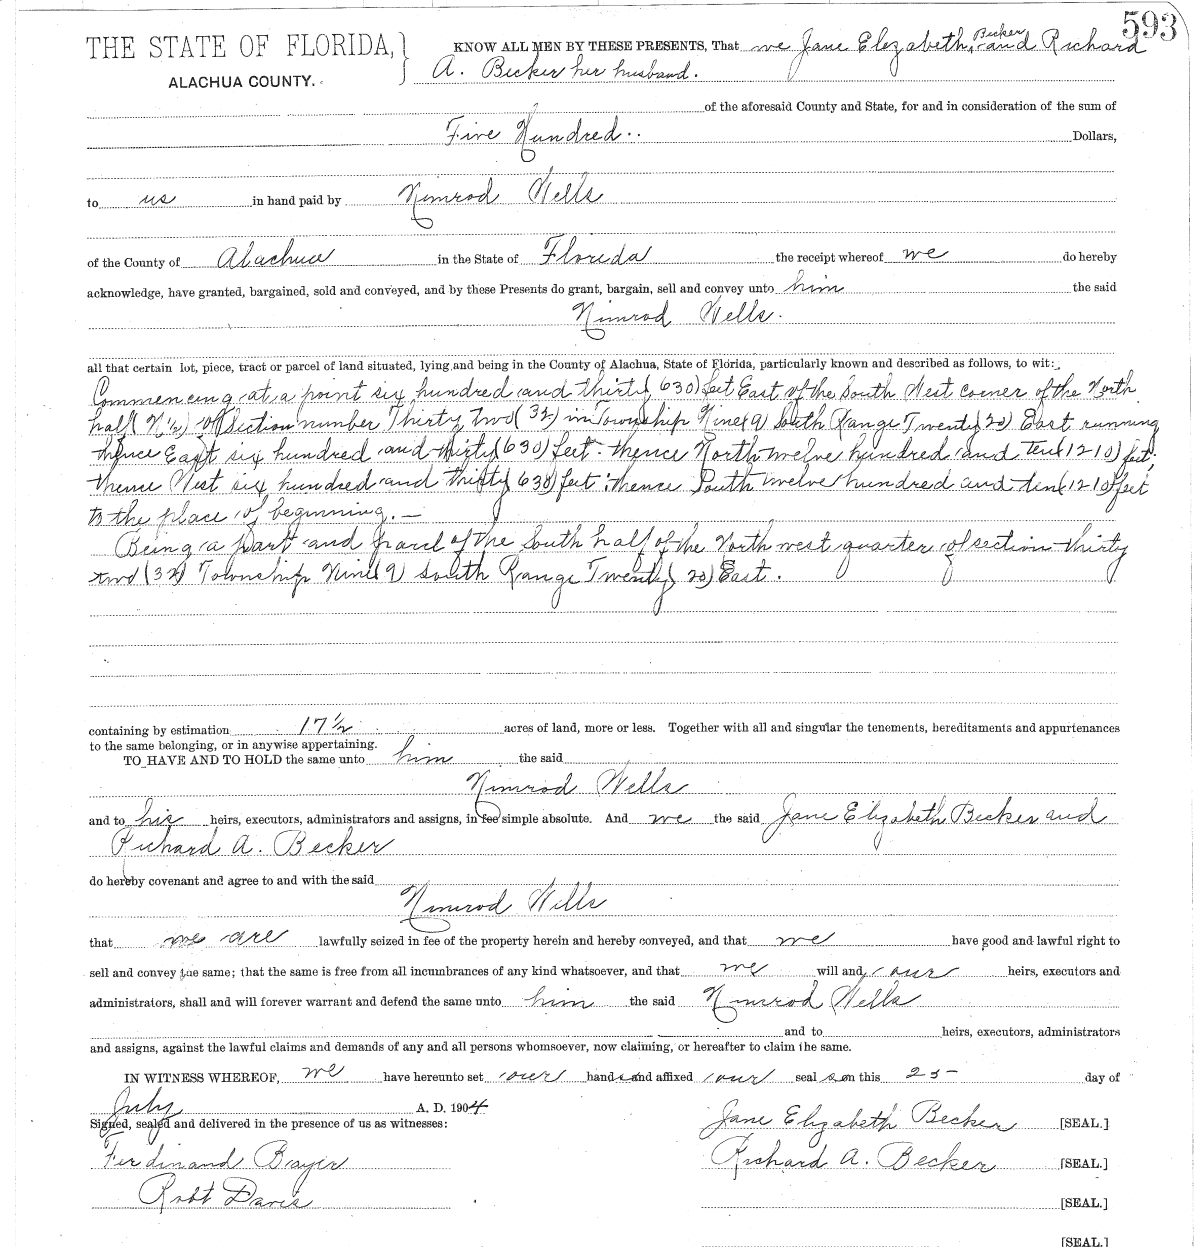 593
THE STATE OF FLORIDA,
ALACHUA COUNTY.
KNOW ALL MEN BY THESE PRESENTS, That we Jane Elizabeth Becker and Richard
A. Becker her husband.
of the aforesaid County and State, for and in consideration of the sum of
Five Hundred.. Dollars,
to us in hand paid by Nimrod Wells
of the County of Alachua in the State of Florida the receipt whereof we do hereby
acknowledge, have granted, bargained, sold and conveyed, and by these Presents do grant, bargain, sell and convey unto him the said
Nimrod Wells.
all that certain lot, piece, tract or parcel of land situated, lying and being in the County of Alachua, State of Florida, particularly known and described as follows, to wit:
Commencing at a point six hundred and thirty (630) feet East of the South West corner of the North
half (N½) of Section number Thirty two (32) in Township Nine (9) South Range Twenty (20) East running
thence East six hundred and thirty (630) feet. thence North twelve hundred and ten (1210) feet;
thence West six hundred and thirty (630) feet; thence South twelve hundred and ten (1210) feet
to the place of beginning. —
Being a part and parcel of the South half of the North west quarter of section thirty
two (32) Township Nine (9) South Range Twenty (20) East.
containing by estimation 17½ acres of land, more or less. Together with all and singular the tenements, hereditaments and appurtenances
to the same belonging, or in anywise appertaining.
TO HAVE AND TO HOLD the same unto him the said
Nimrod Wells
and to his heirs, executors, administrators and assigns, in fee simple absolute. And we the said Jane Elizabeth Becker and
Richard A. Becker
do hereby covenant and agree to and with the said
Nimrod Wells
that we are lawfully seized in fee of the property herein and hereby conveyed, and that we have good and lawful right to
sell and convey the same; that the same is free from all incumbrances of any kind whatsoever, and that we will and our heirs, executors and
administrators, shall and will forever warrant and defend the same unto him the said Nimrod Wells
and to heirs, executors, administrators
and assigns, against the lawful claims and demands of any and all persons whomsoever, now claiming, or hereafter to claim the same.
IN WITNESS WHEREOF, we have hereunto set our hands and affixed our seals on this 25 day of
July A. D. 1904
Signed, sealed and delivered in the presence of us as witnesses:
Jane Elizabeth Becker [SEAL.]
Ferdinand Bayer Richard A. Becker [SEAL.]
Robt Davis [SEAL.]
[SEAL.]